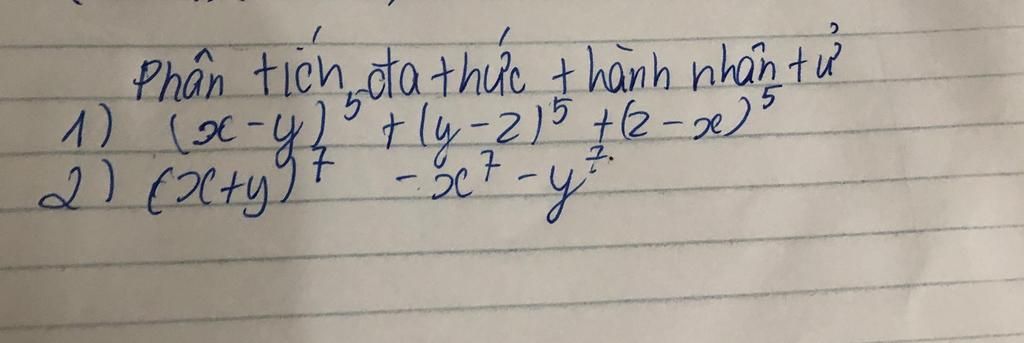 Phân tích đa thức thành nhân tử
1) (x-y)⁵ + (y-z)⁵ + (z-x)⁵
2) (x+y)⁷ - x⁷ - y⁷.